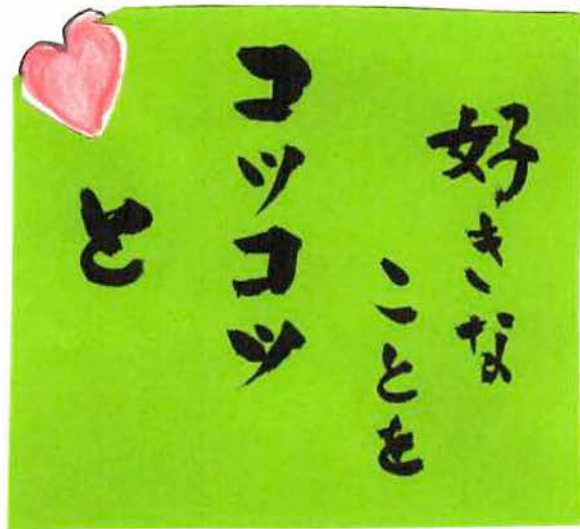 好きな
ことを
コツコツ
と